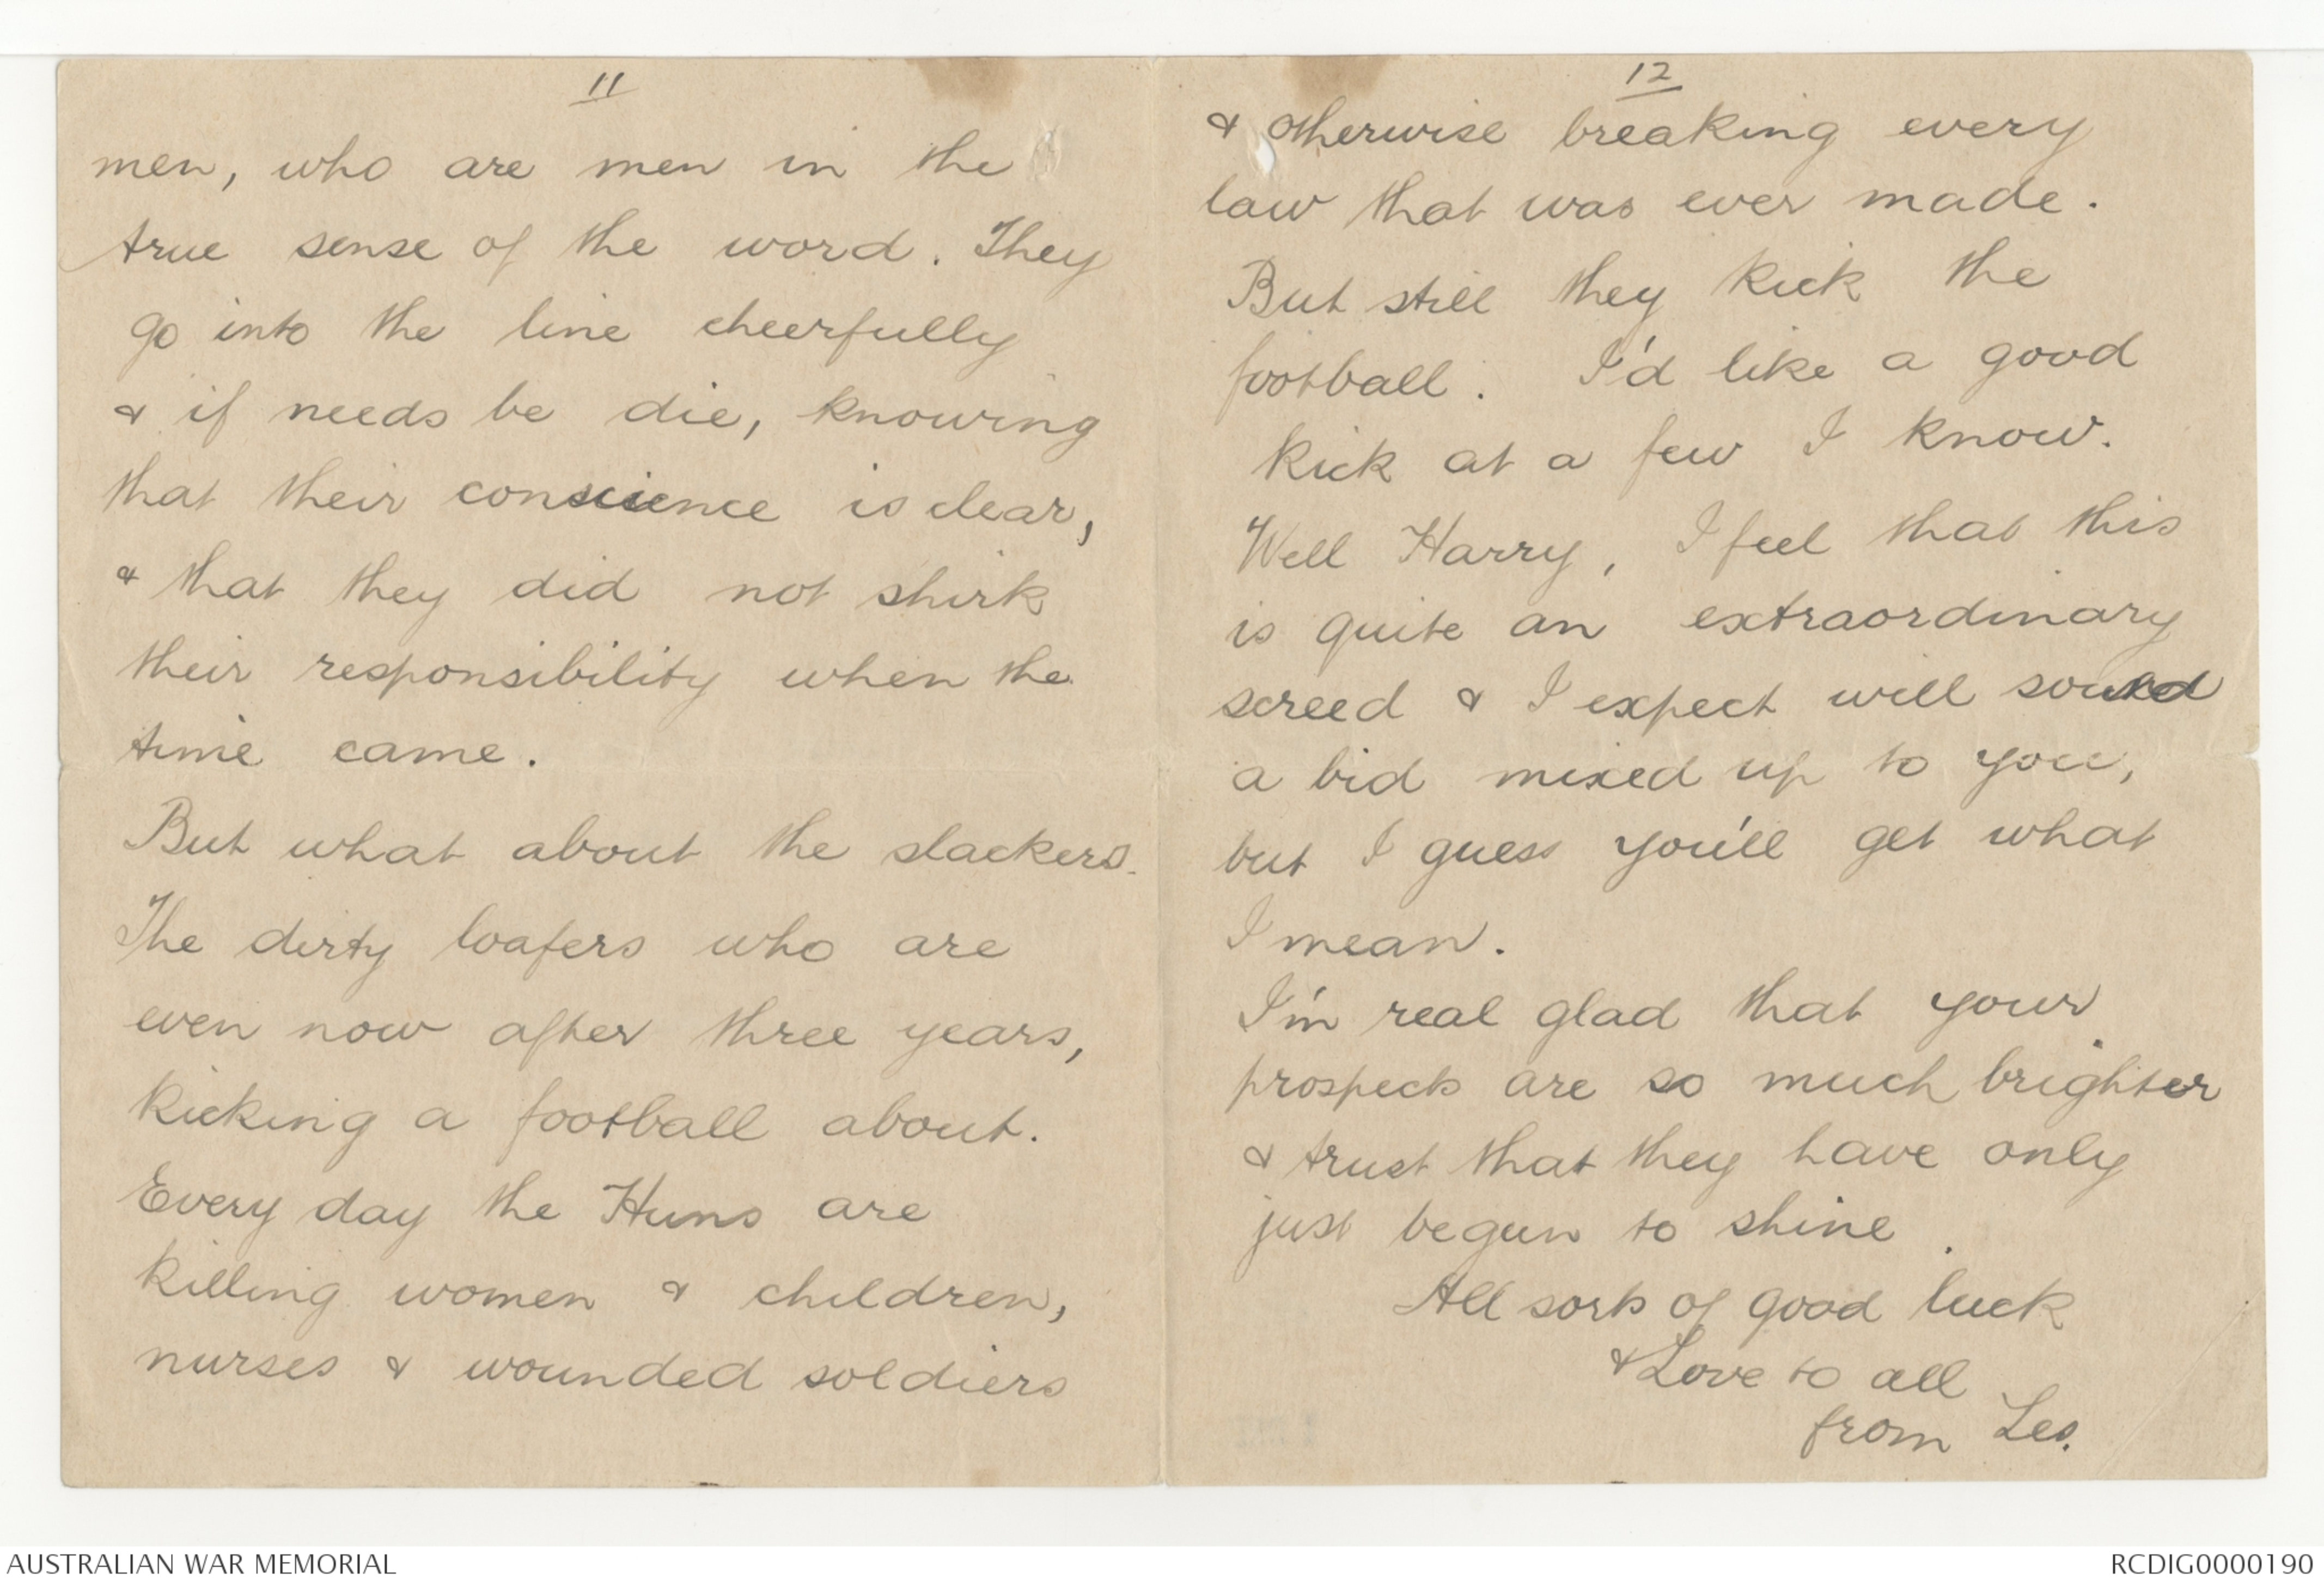 11
men, who are men in the
true sense of the word. They
go into the line cheerfully
& if needs be die, knowing
that their conscience is clear,
& that they did not shirk
their responsibility when the
time came.
But what about the slackers.
The dirty loafers who are
even now after three years,
kicking a football about.
Every day the Huns are
killing women & children,
nurses & wounded soldiers
12
& otherwise breaking every
law that was ever made.
But still they kick the
football. I'd like a good
kick at a few I know.
Well Harry, I feel that this
is quite an extraordinary
screed & I expect will sound
a bid mixed up to you,
but I guess you'll get what
I mean.
I'm real glad that your
prospects are so much brighter
& trust that they have only
just begun to shine.
All sorts of good luck
& Love to all
from Les.
AUSTRALIAN WAR MEMORIAL
RCDIG0000190